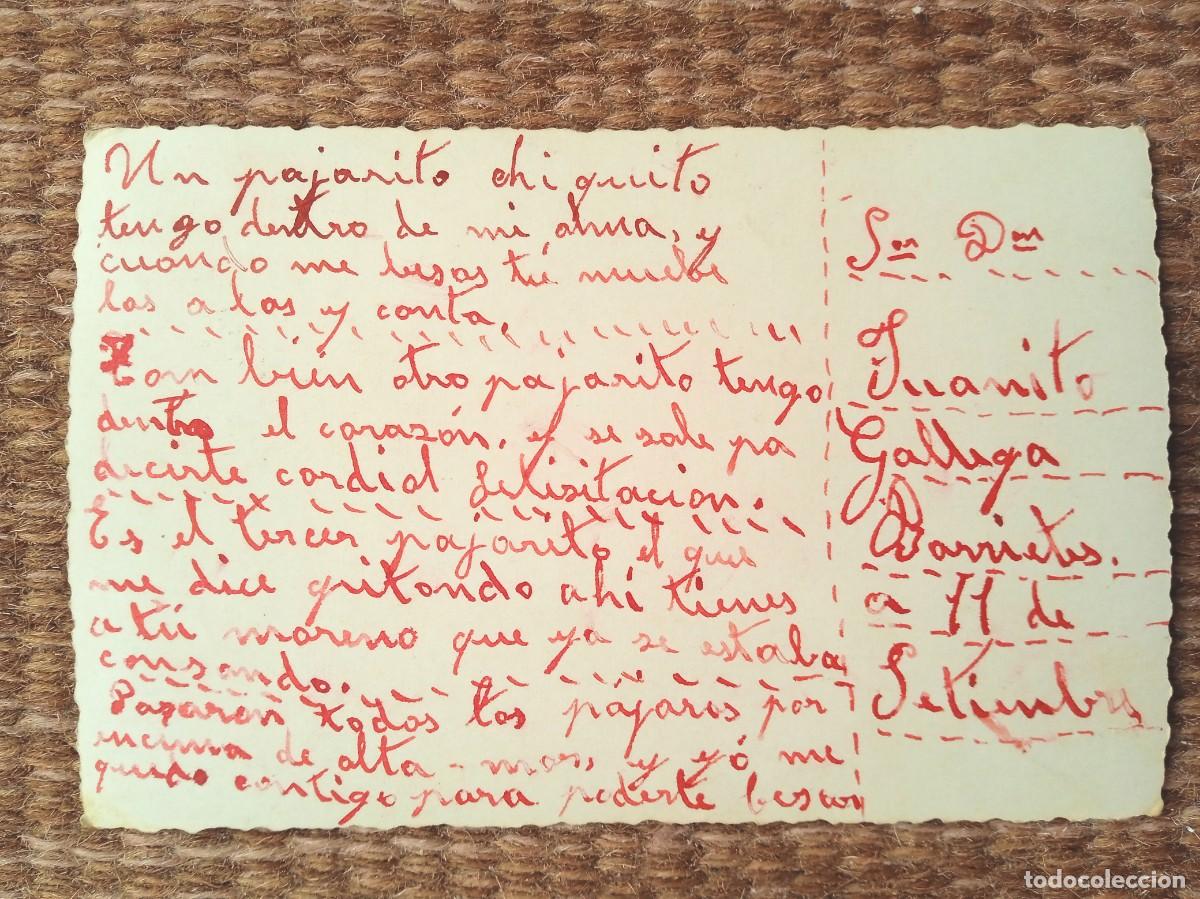 Un pajarito chiquito
tengo dentro de mi alma, y
cuando me besas tú muebe
las a las y canta,
Tam bien otro pajarito tengo
dentro el corazón, y se sale pa
decirte cordial felisitacion.
Es el tercer pajarito el que
me dice gritando ahí tienes
a tú moreno que ya se estaba
cansando.
Pasaron todos los pájaros por
encima de alta-mar, y yó me
quedo contigo para poderte besar
Sor Don
Juanito
Gallega
Barrietes.
a 11 de
Setiembre
todocoleccion